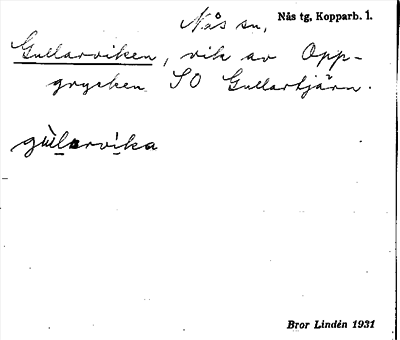 Nås sn, Nås tg, Kopparb. l.
Gullarviken, vik av Opp-
grycken SO Gullartjärn.
gùlarvika
Bror Lindén 1931